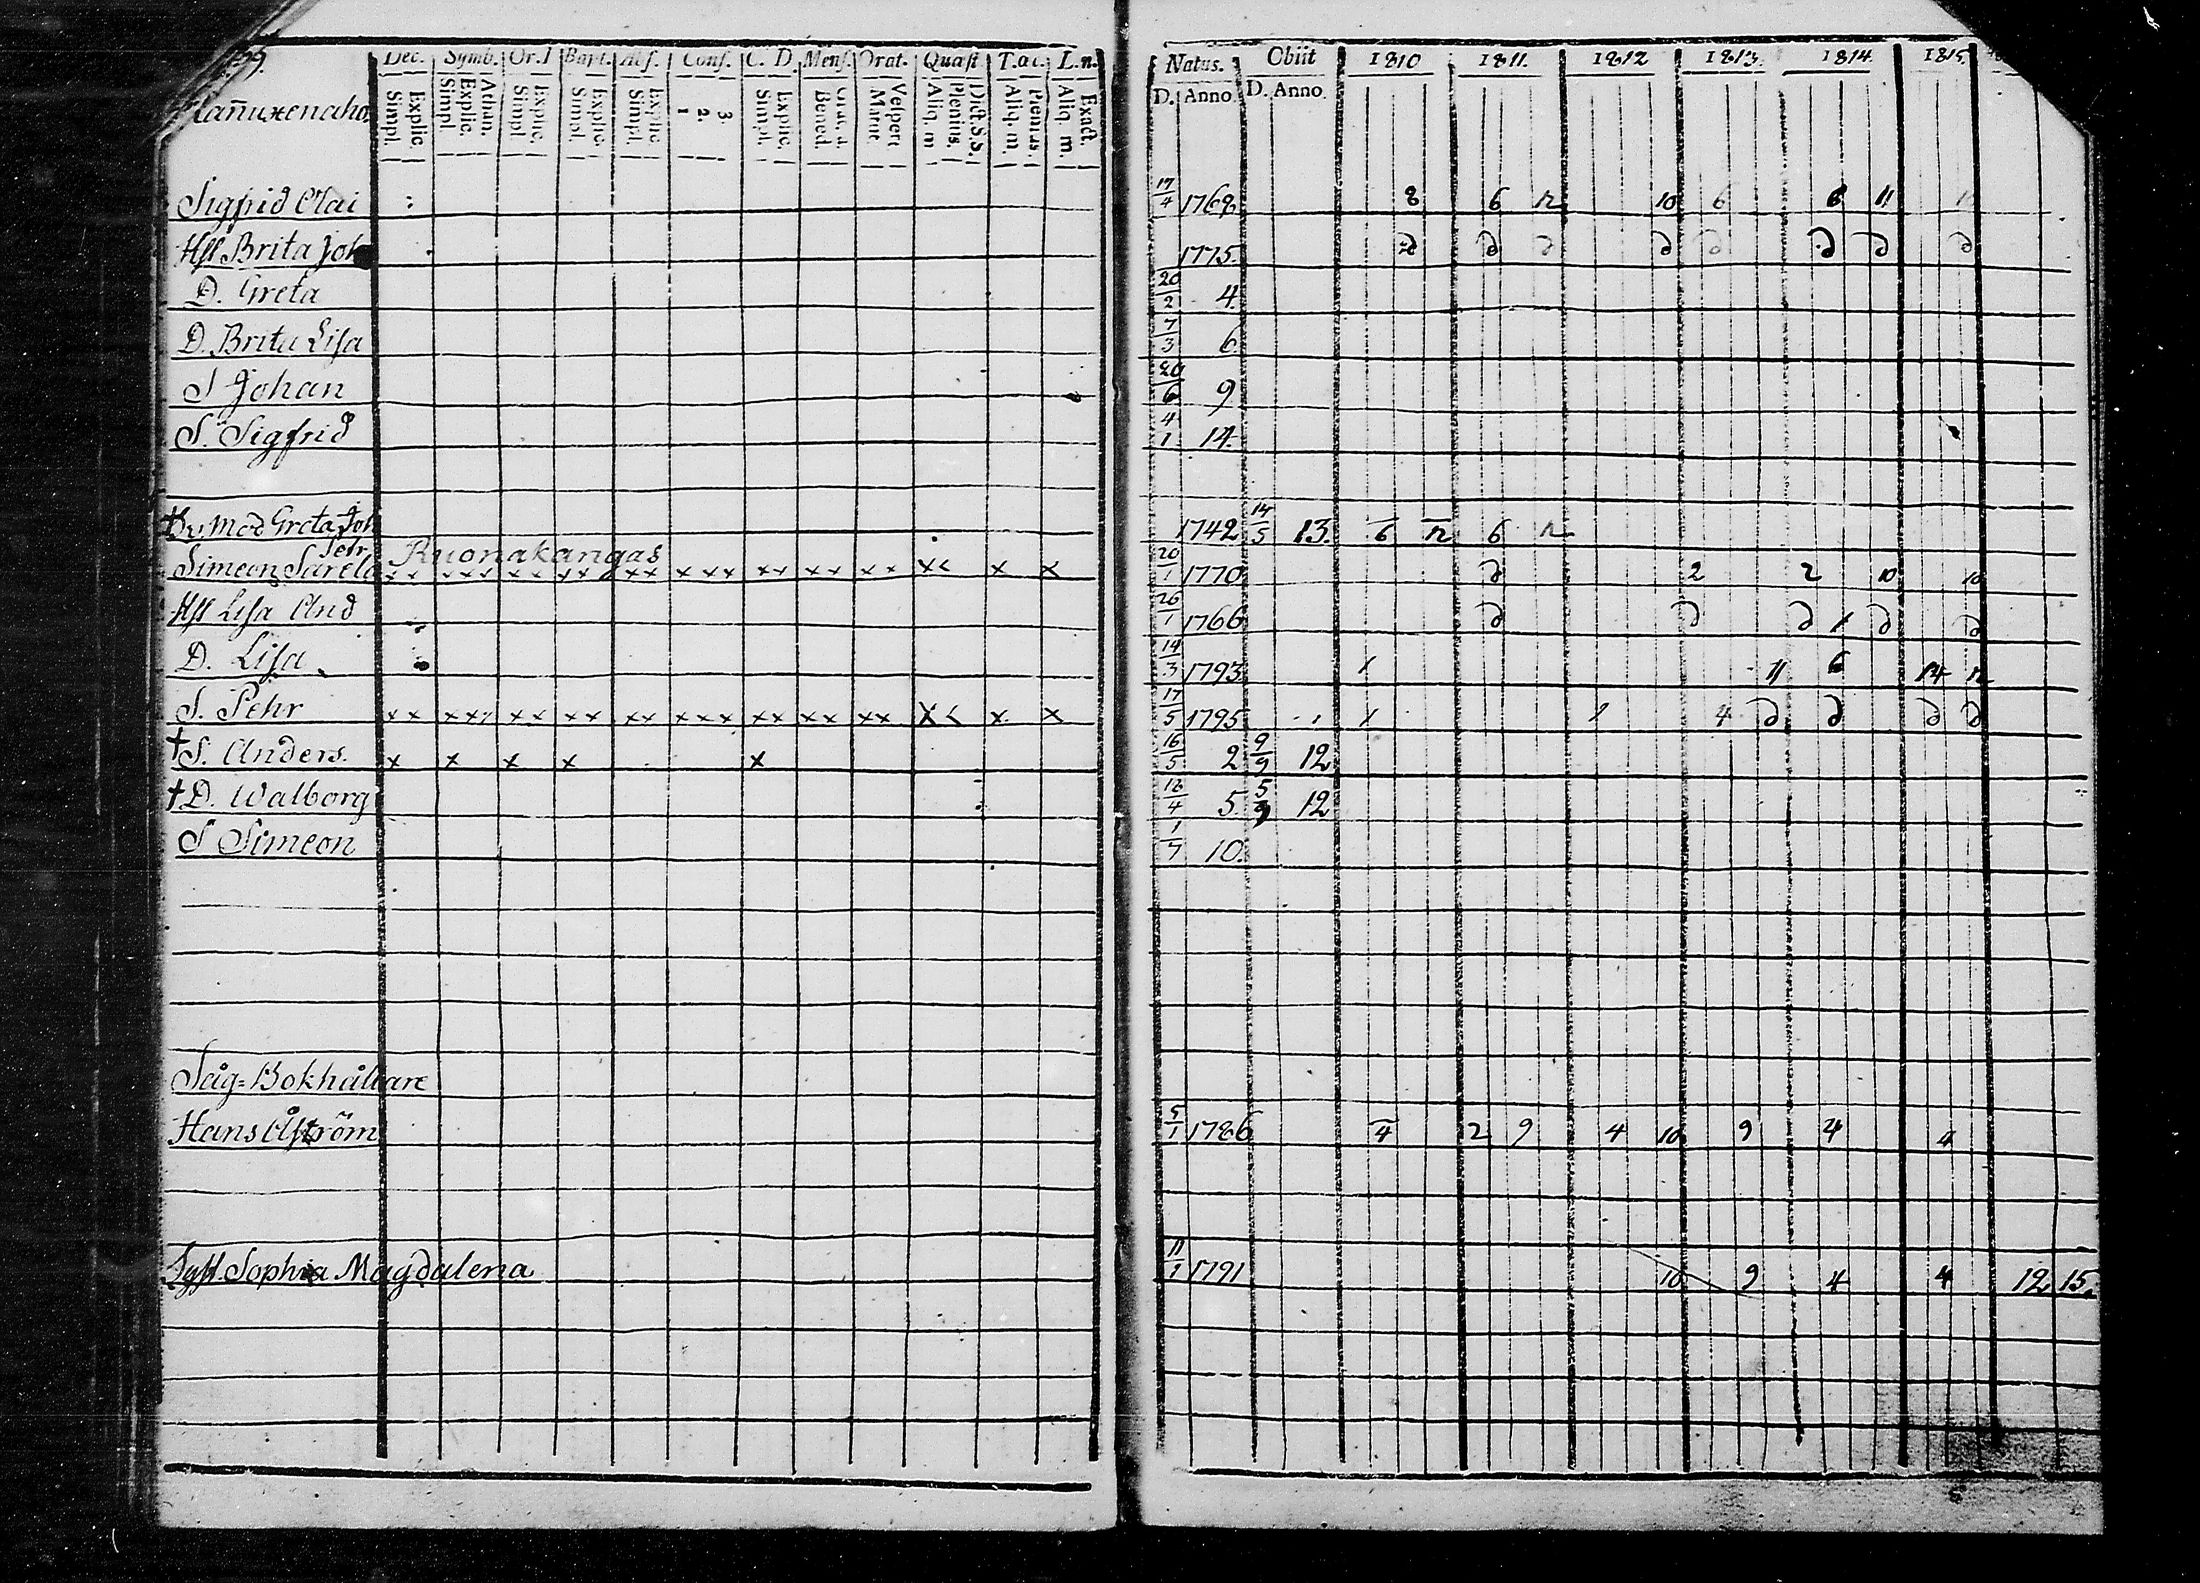 Dec. Symb. Or. Bapt. Conf. C. D. Mens. Orat. Quæst. T. L.n.
Simpl. Explic. Simpl. Explic. Athan. Simpl. Explic. Simpl. Explic. Simpl. Explic. 1 2. 3. Simpl. Explic. Bened. Matut. Vespert. Aliq. m. Plenius. Dict. S.S. Aliq. m. Plenius. Aliq. m. Exact.
Natus. Obiit 1810 1811. 1812 1813. 1814 1815.
D. Anno D. Anno.
Sigfrid Olai 17/4 1768 8 6 12 10 6 6 11
Hst Brita Joh 1775. D D D D D D D D
D. Greta 20/2 4.
D. Brita Lisa 7/3 6.
S Johan 20/6 9
S. Sigfrid 4/1 14.
Mod Greta Joh 1742 14/5 13. 6 12 6 12
Pehr Ruonakangas
Simeon x x x x x x x x x x x x x x x x x x x x x x x x x 20/1 1770 D 2 2 10 10
Hst Lisa And 26/1 1766 D D D 1 D D
D. Lisa 14/3 1793 1 11 6 14 12
S. Pehr x x x x x x x x x x x x x x x x x x x x x x x x x 17/5 1795 1 1 4 D D D D
† S. Anders. x x x x x 16/5 2 9/9 12
† D. Walborg 5. 5/9 12
S Simeon 1/7 10.
Såg=Bokhållare
Hans Åström 5/1 1786 4 2 9 4 10 9 4 4
Syst. Sophia Magdalena 11/1 1791 10 9 4 4 12 15.